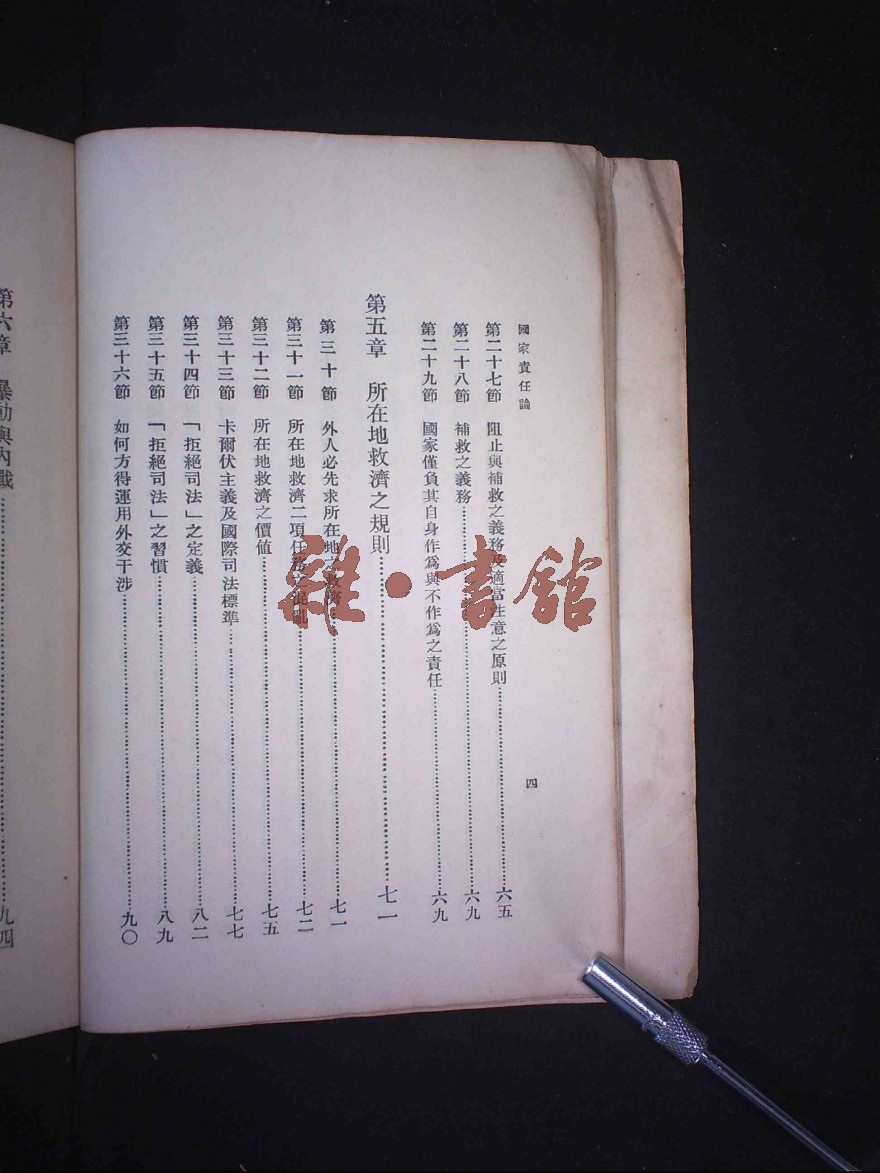 國家責任論
四
第二十七節 阻止與補救之義務及適當注意之原則……六五
第二十八節 補救之義務……六九
第二十九節 國家僅負其自身作為與不作為之責任……六九
第五章 所在地救濟之規則……七一
第三十節 外人必先求所在地之救濟……七一
第三十一節 所在地救濟二項任務之混亂……七二
第三十二節 所在地救濟之價值……七五
第三十三節 卡爾伏主義及國際司法標準……七七
第三十四節 「拒絕司法」之定義……八二
第三十五節 「拒絕司法」之習慣……八九
第三十六節 如何方得運用外交干涉……九〇
第六章 暴動與內戰……九四
雜·書館